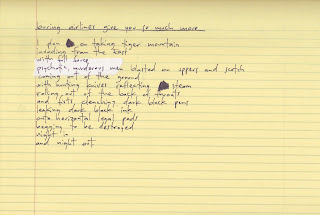 boring airlines give you so much more
i plan on taking tiger mountain
invading from the east
with full force
psychotic, murderous men blasted on uppers and scotch
coming out of the ground
with hunting knives reflecting steam
rolling out of the back of
and fists clenching dark black pens
leaking dark black ink
onto horizontal legal pads
begging to be destroyed
night in
and night out